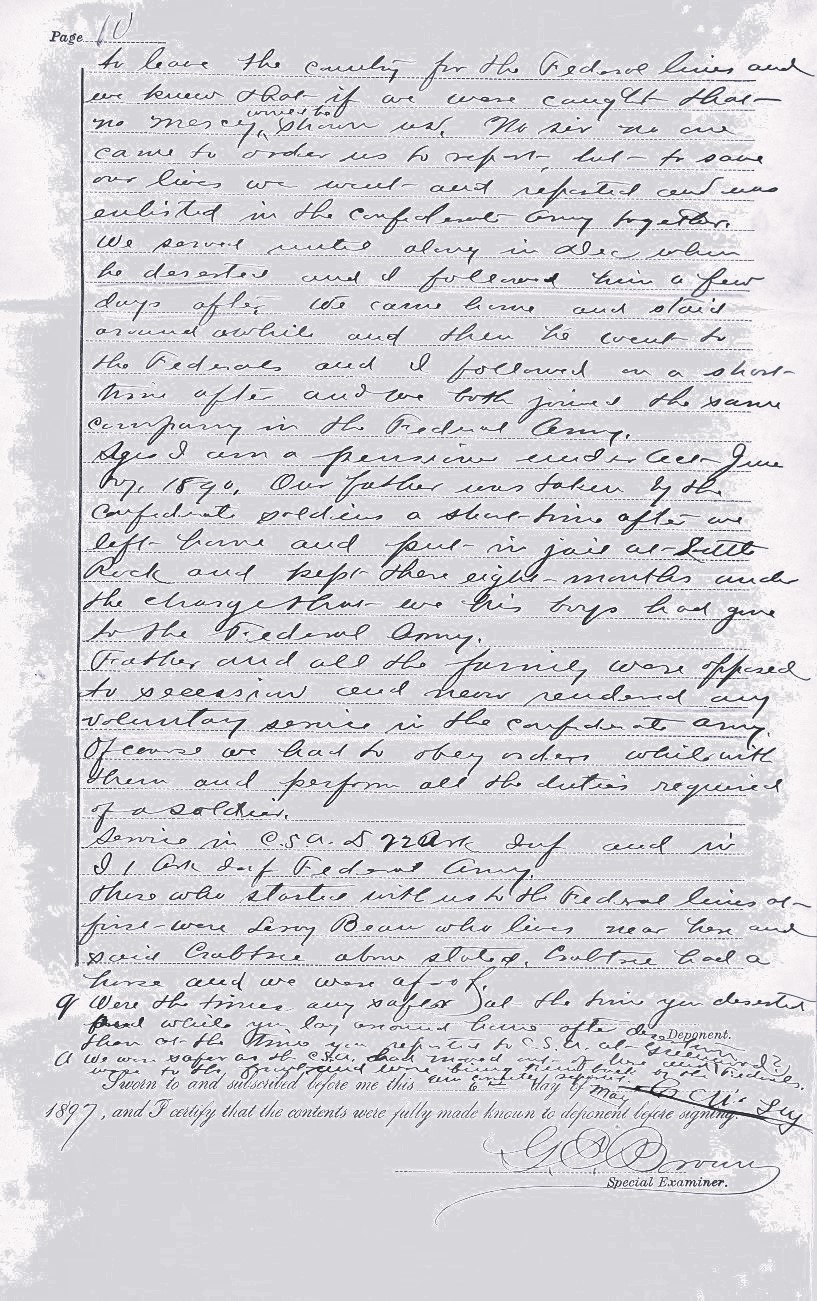 Page 10
to leave the country for the Federal lines and
we knew that if we were caught that
no mercy would be shown us. No sir no one
came to order us to report, but to save
our lives we went and reported and was
enlisted in the confederate Army together.
We served until along in Dec, when
he deserted and I followed him a few
days after. We came home and staid
around awhile and then he went to
the Federals and I followed in a short
time after and we both joined the same
company in the Federal Army.
I am a pensioner under Act June
27, 1890. Our father was taken by the
confederate soldiers a short time after we
left home and put in jail at Little
Rock and kept there eight months under
the charge that we his boys had gone
to the Federal Army.
Father and all the family were opposed
to secession and never rendered any
voluntary service in the confederate army.
Of course we had to obey orders while with
them and perform all the duties required
of a soldier.
Service in C.S.A. Ark Inf and in
I 1 Ark Inf Federal Army.
Those who started with us to the Federal lines at
first were Leroy Bean who lives near here and
said Crabtree above stated. Crabtree had a
horse and we were afoot.
Q Were the times any safer at the time you deserted
and while you lay around home after
than at the time you reported to C.S.A. at
Deponent.
A We were safer as the C.S.A. had moved out of here and
were to the and were being by Federals.
Sworn to and subscribed before me this 6th day of May
1897, and I certify that the contents were fully made known to deponent before signing.
G. E. Brown
Special Examiner.